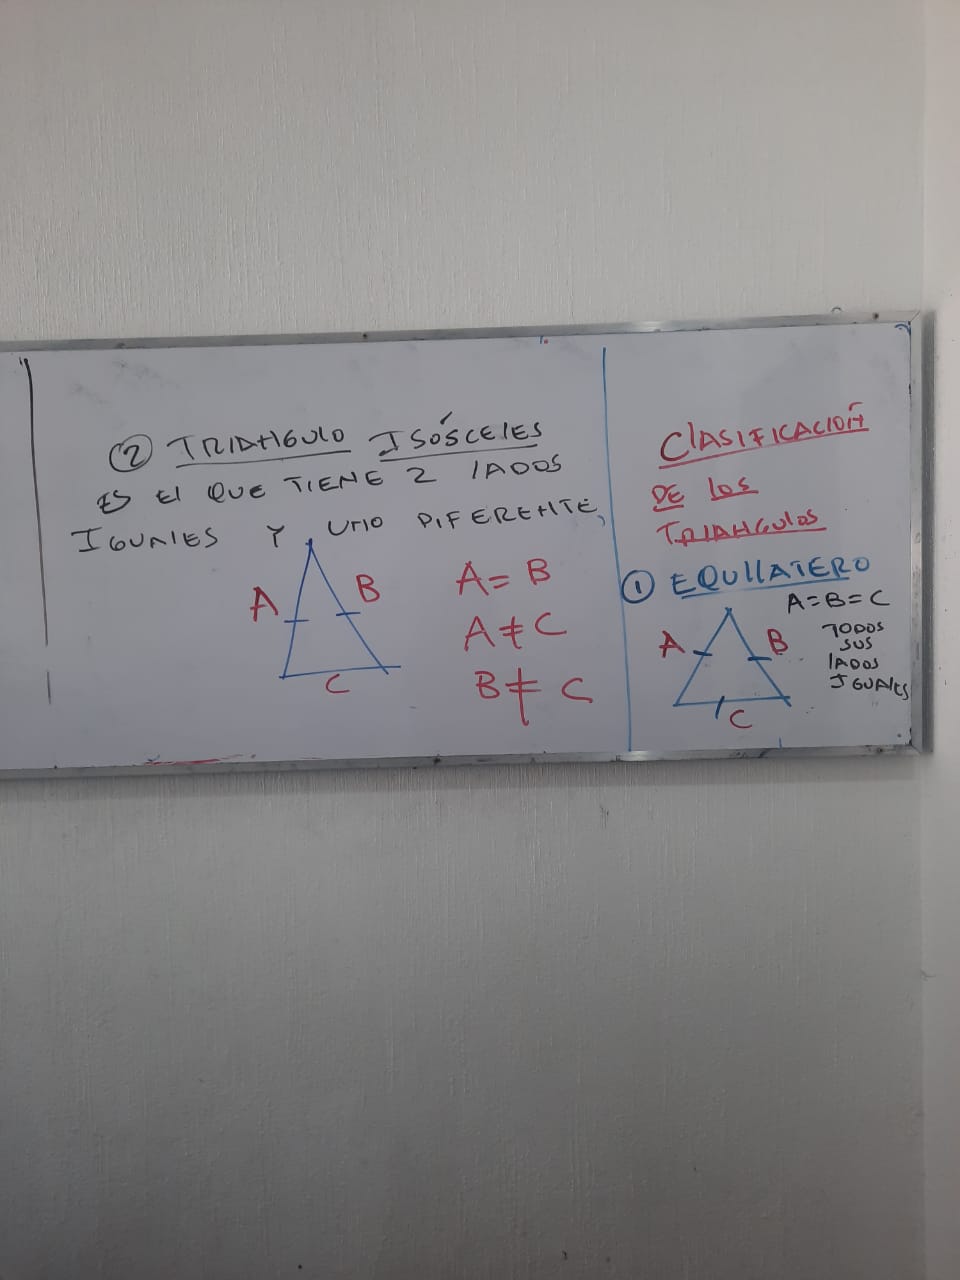 ② TRIANGULO ISÓSCELES
ES El QUE TIENE 2 lADOS
IGUALES Y UNO DIFERENTE,
A
B
C
A = B
A ≠ C
B ≠ C
ClASIFICACIÓN
DE los
TRIANGUlos
① EQUIlATERO
A=B=C
TODOS
SUS
lADOS
IGUALES
A
B
C